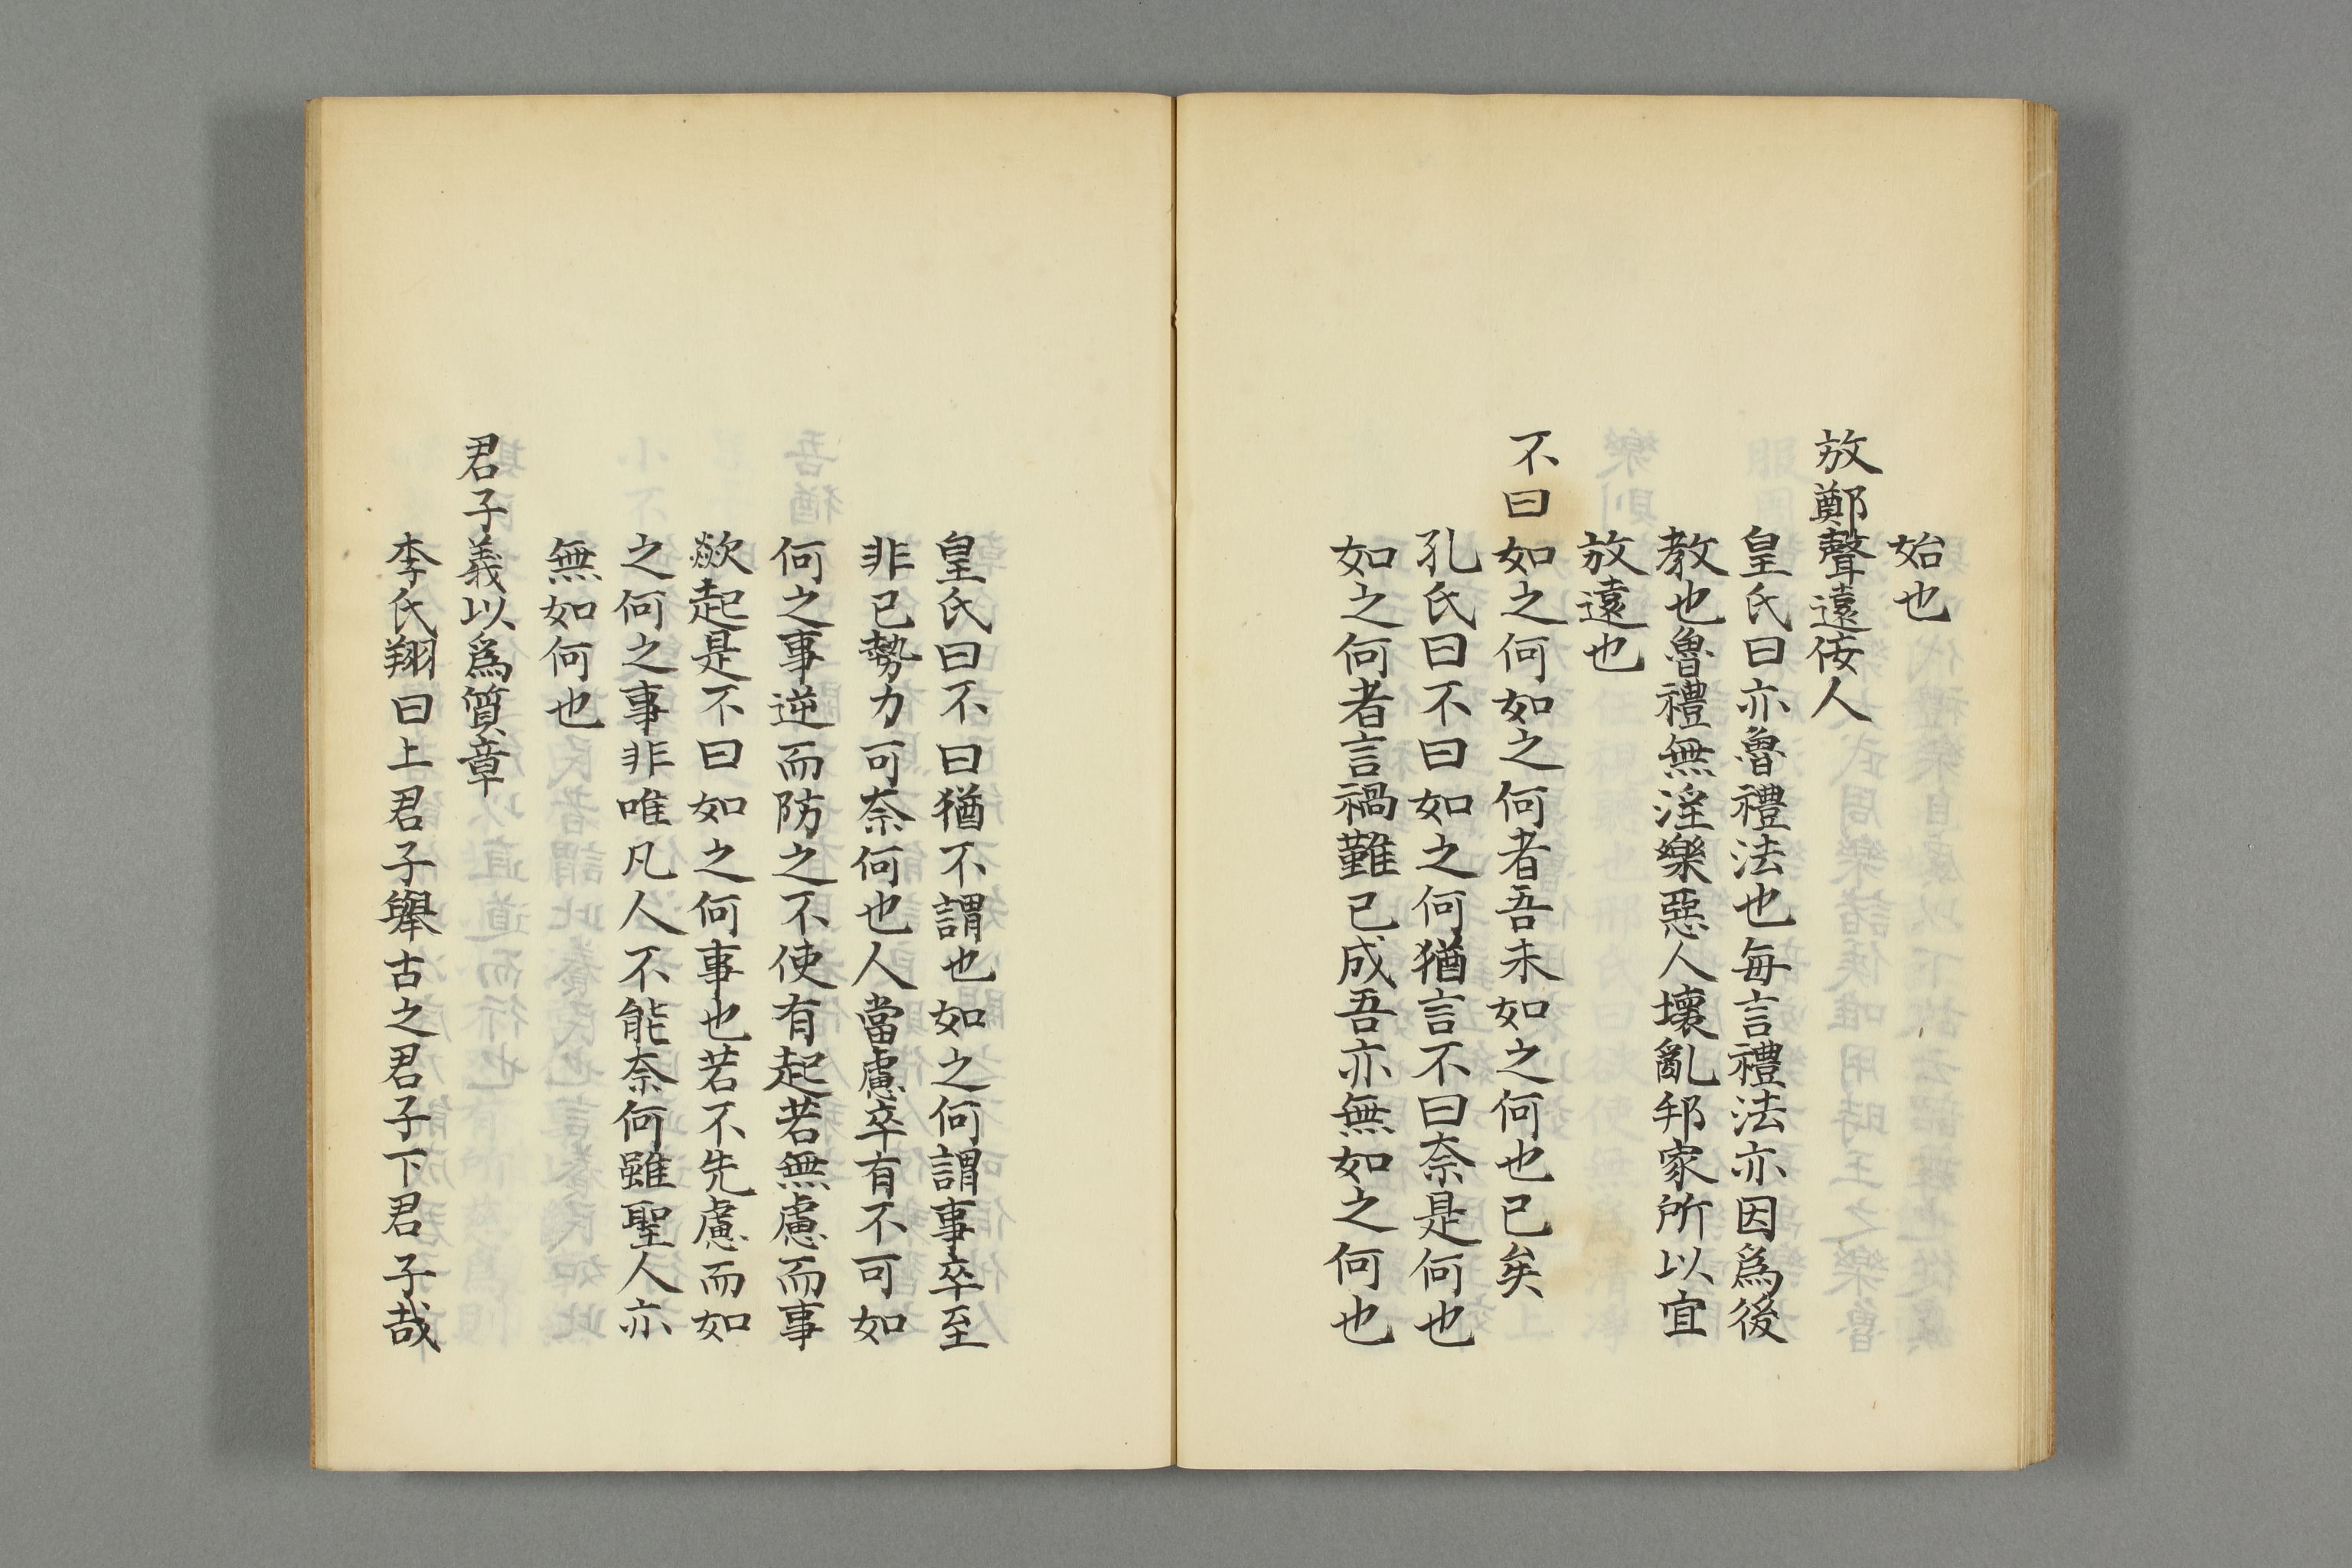 始也
放鄭聲遠佞人
皇氏曰亦魯禮法也每言禮法亦因爲後
教也魯禮無淫樂惡人壞亂邦家所以宜
放遠也
不曰如之何如之何者吾未如之何也已矣
孔氏曰不曰如之何猶言不曰奈是何也
如之何者言禍難已成吾亦無如之何也
皇氏曰不曰猶不謂也如之何謂事卒至
非已勢力可奈何也人當慮卒有不可如
何之事逆而防之不使有起若無慮而事
歘起是不曰如之何事也若不先慮而如
之何之事非唯凡人不能奈何雖聖人亦
無如何也
君子義以爲質章
李氏翔曰上君子舉古之君子下君子哉